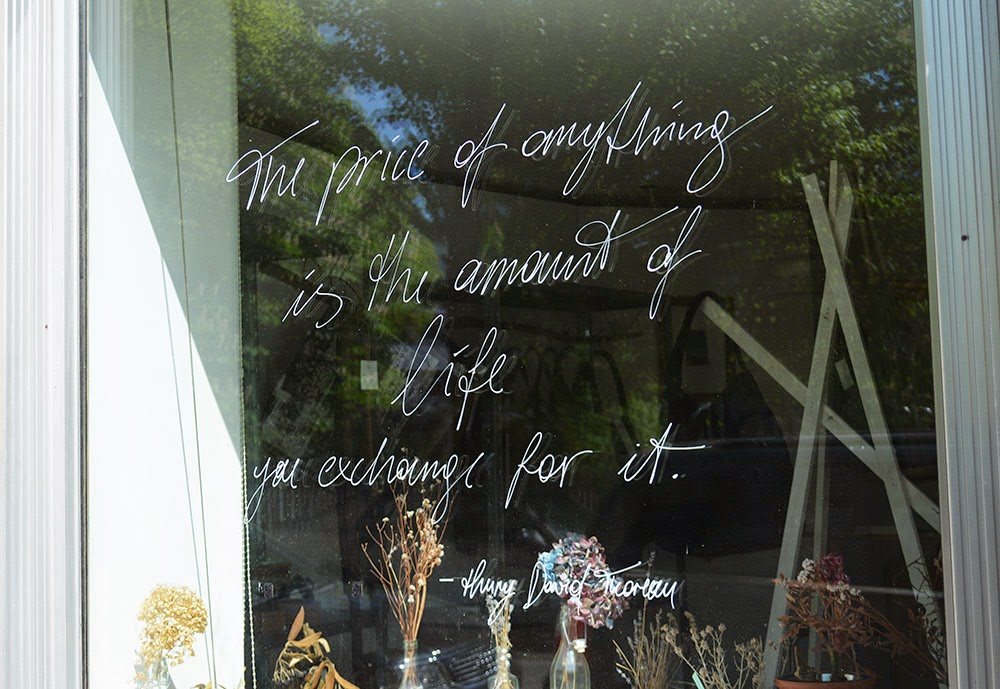 The price of anything
is the amount of
life
you exchange for it.
- Henry David Thoreau